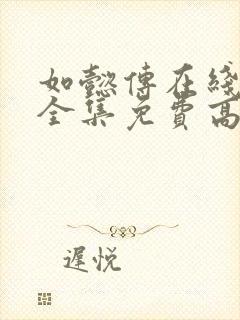 如懿傳在綫
全集免費高
遲悅